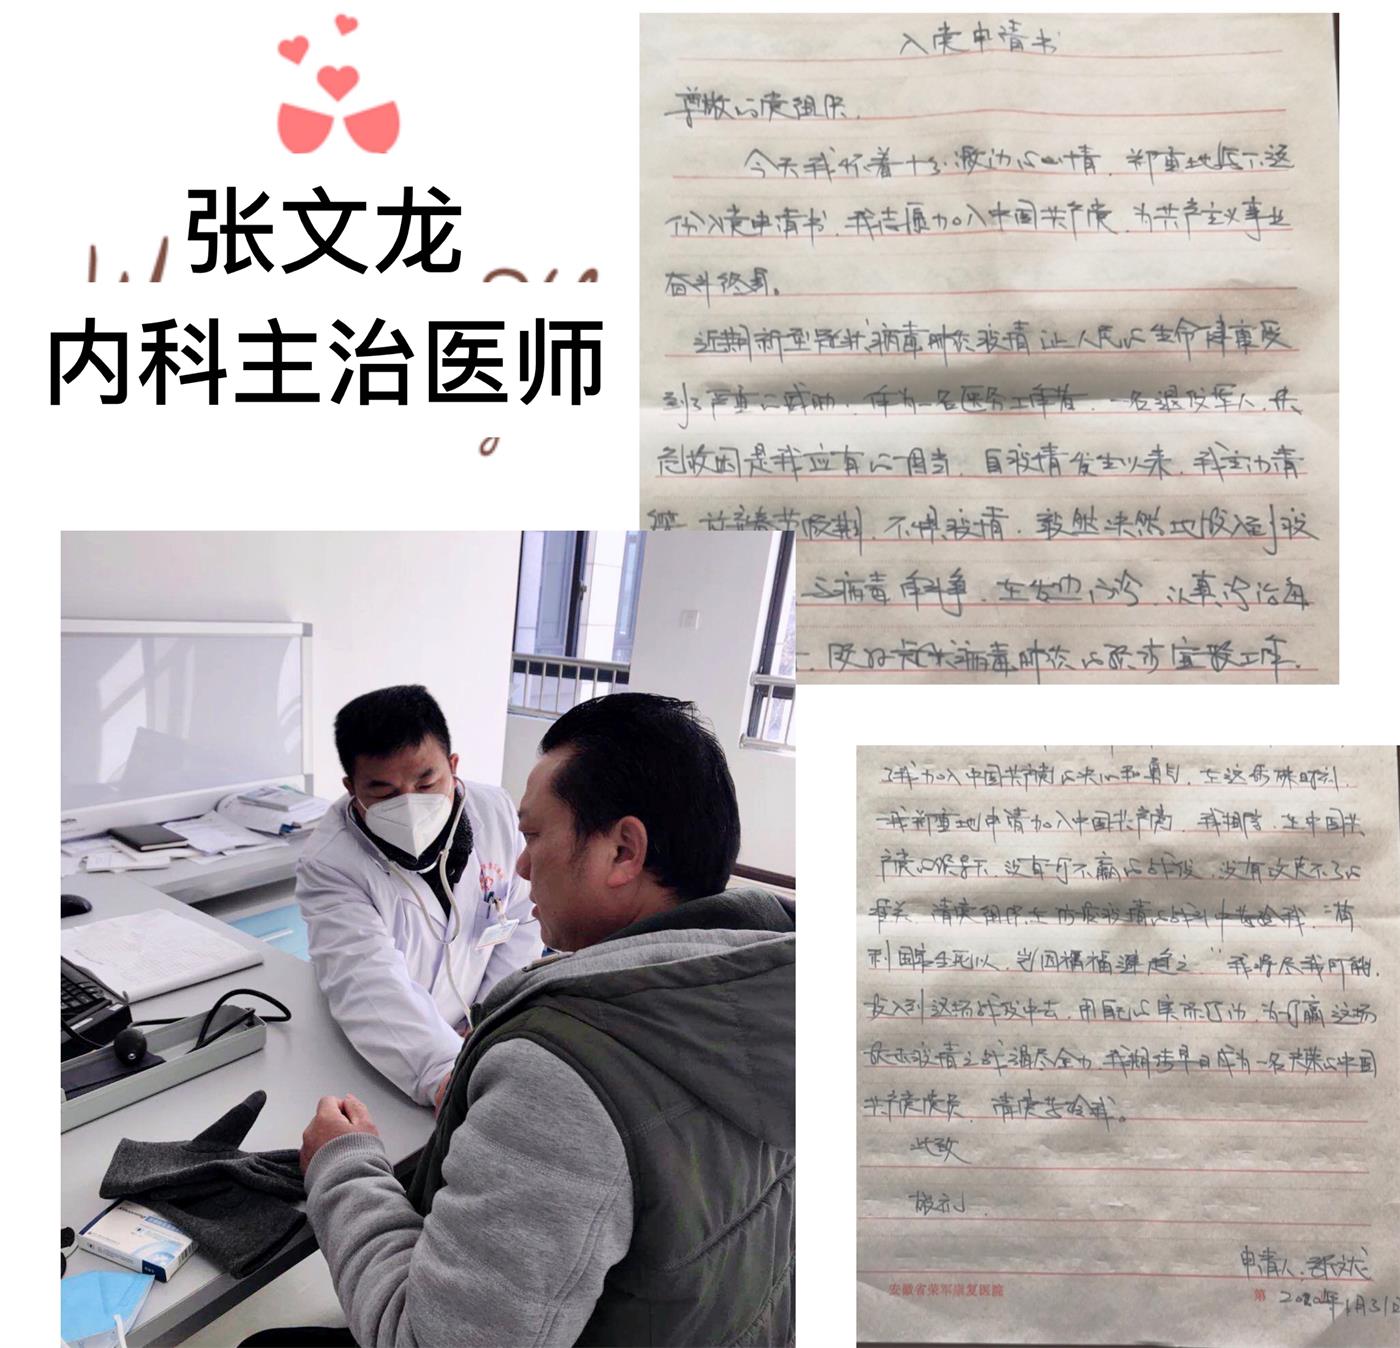 张文龙
内科主治医师
入党申请书
尊敬的党组织.
今天我怀着十分激动的心情,郑重地递交这
份入党申请书,我志愿加入中国共产党,为共产主义事业
奋斗终身。
近期新型冠状病毒肺炎疫情让人民的生命健康受
到了严重的威胁,作为一名医务工作者,一名退役军人,
危救困是我应有的担当,自疫情发生以来,我主动请
春节假期,不惧疫情,毅然决然地投入到疫
与病毒作斗争,在发热门诊,认真诊治每
冠状病毒肺炎的
了我加入中国共产党的决心和勇气,在这特殊时刻,
我郑重地申请加入中国共产党,我相信,在中国共
产党的领导下,没有打不赢的战役,没有攻克不了的
难关,请党组织在防疫疫情的战斗中考验我,“苟
利国家生死以,岂因祸福避趋之”我将尽我所能,
投入到这场战役中去,用自己的实际行动,为打赢这场
疫情之战竭尽全力,我期待早日成为一名光荣的中国
共产党党员,请党考验我。
此致
敬礼
申请人:张文龙
安徽省荣军康复医院
第
2020年1月31日